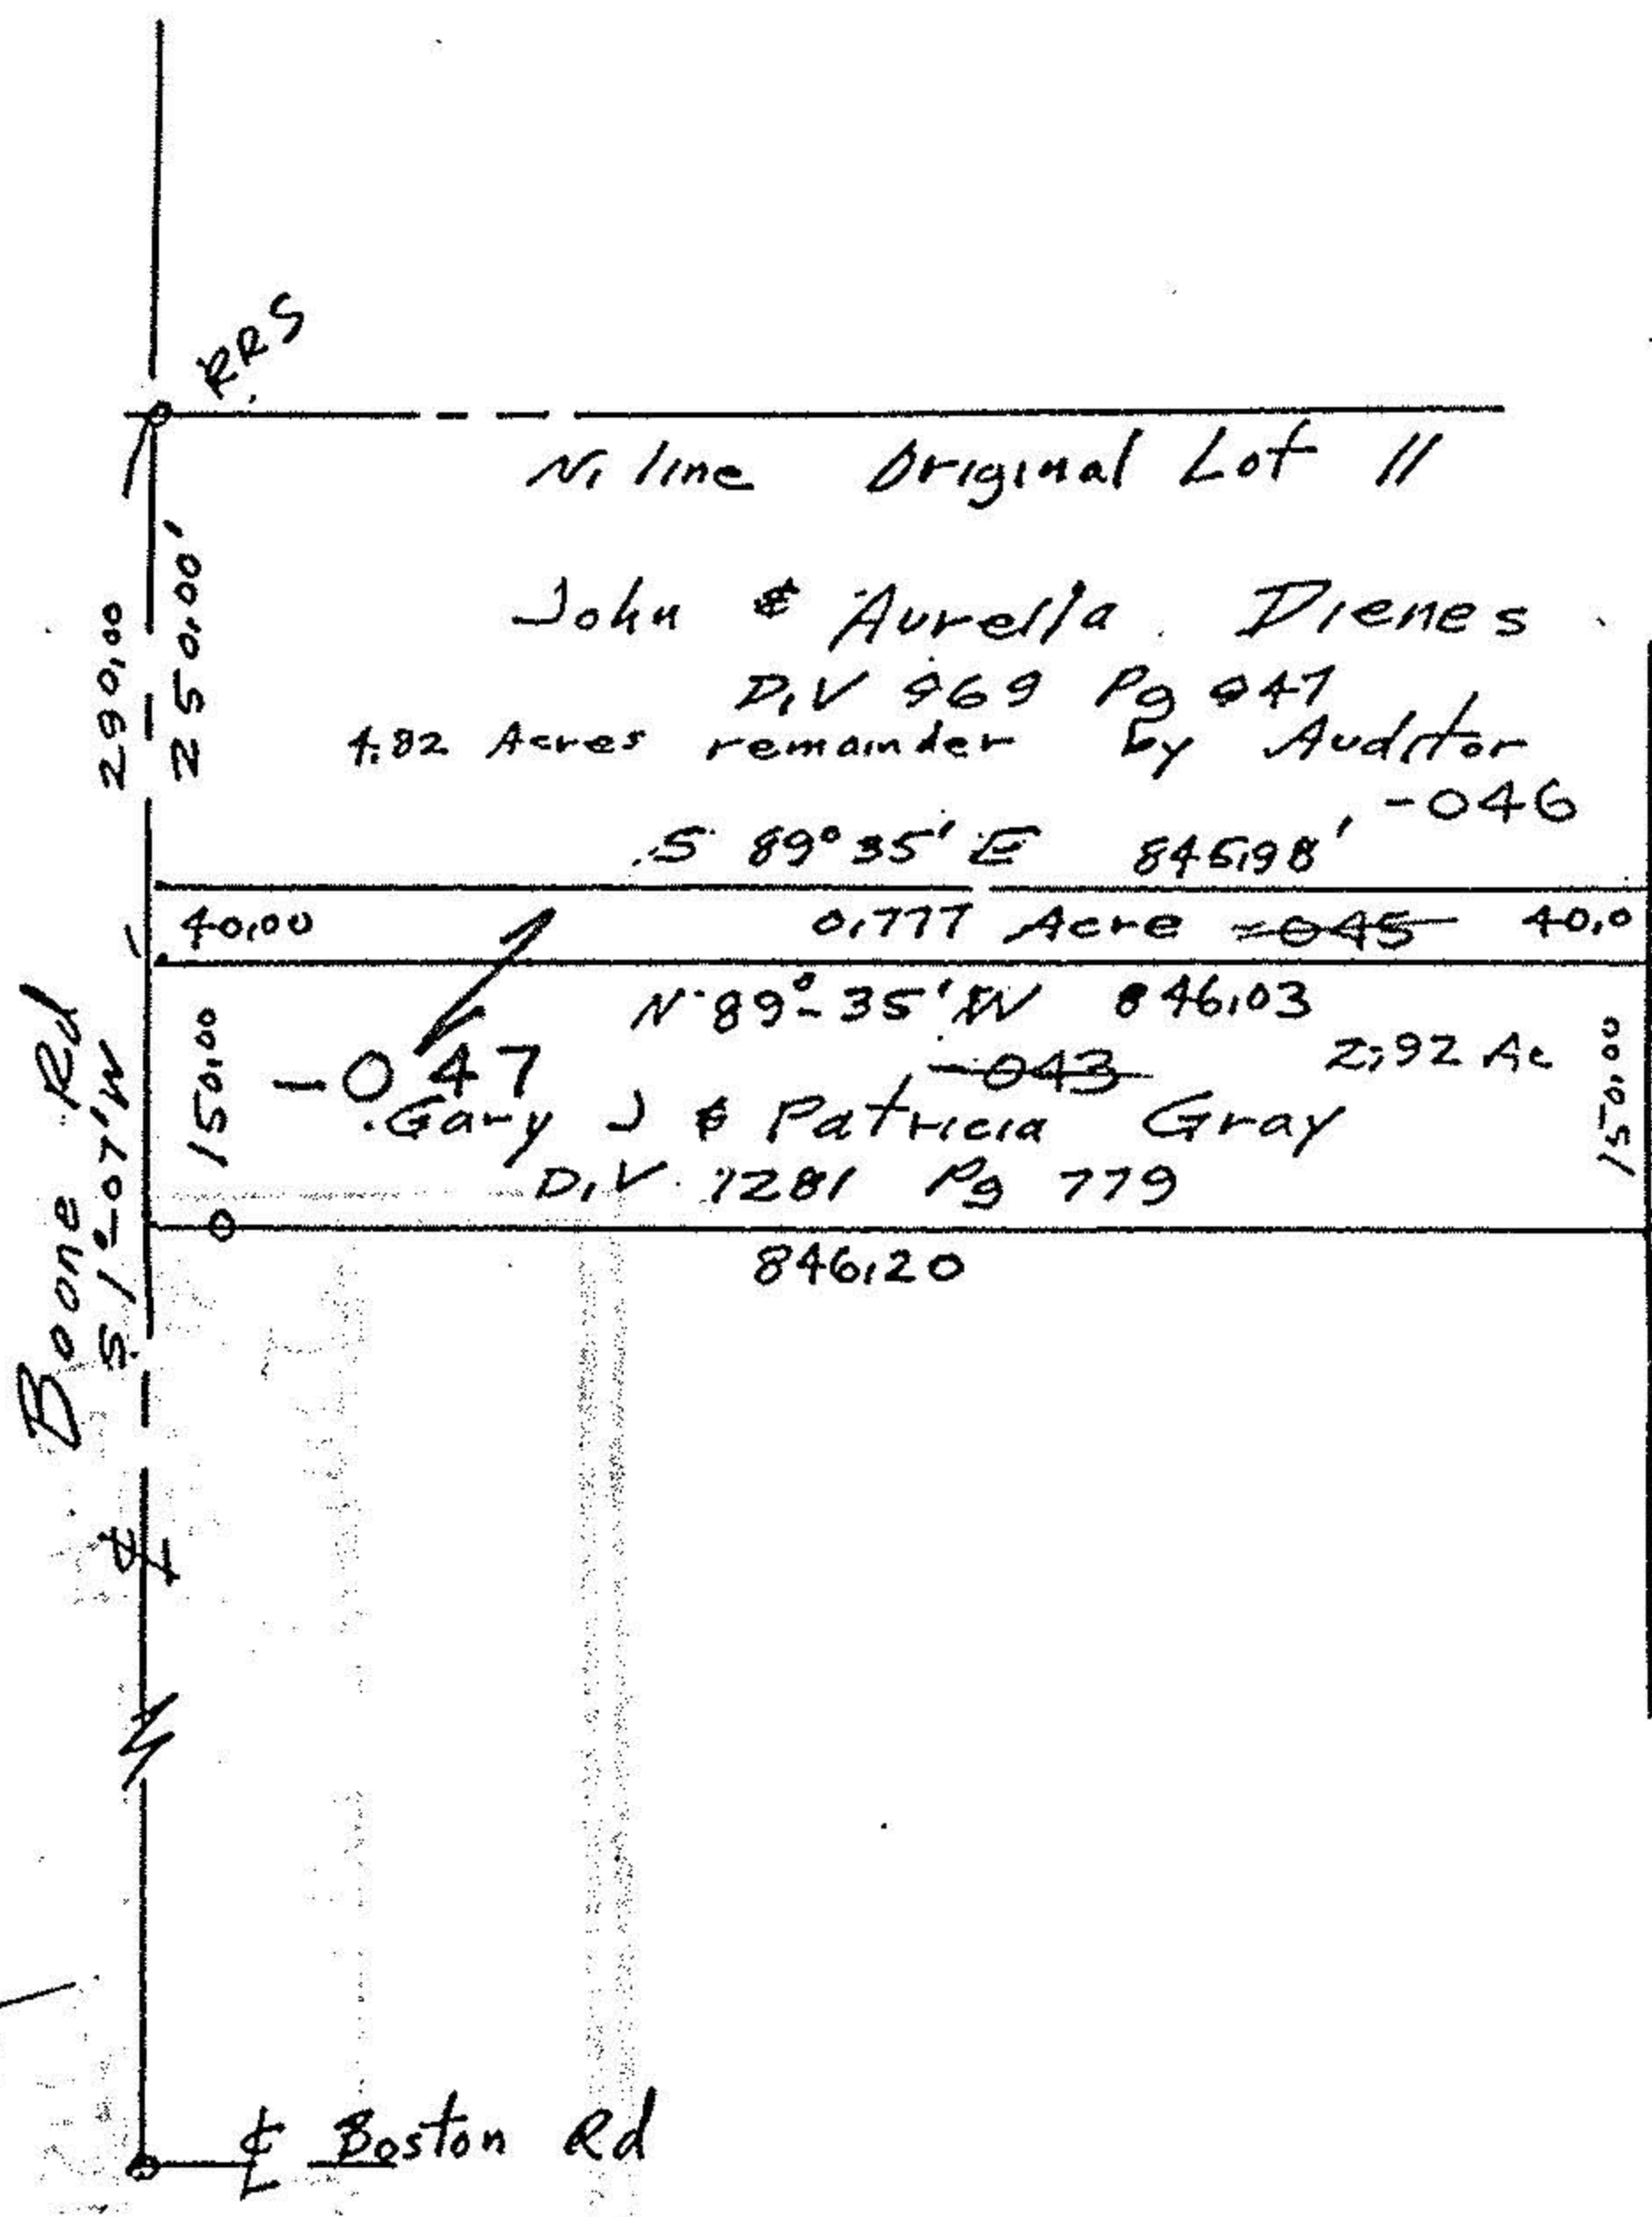 RRS
N. line Original Lot 11
290.00
250.00'
John & Aurelia Dienes
D.V 969 Pg 947
4.82 Acres remainder by Auditor
-046
S 89° 35' E 845.98'
40.00 0.777 Acre -045 40.0
N 89°-35' W 846.03
150.00
-047 -043 2.92 Ac
150.00
Gary J & Patricia Gray
D.V. 1281 Pg 779
846.20
Boone Rd
S 1°-07' W
℄
℄ Boston Rd